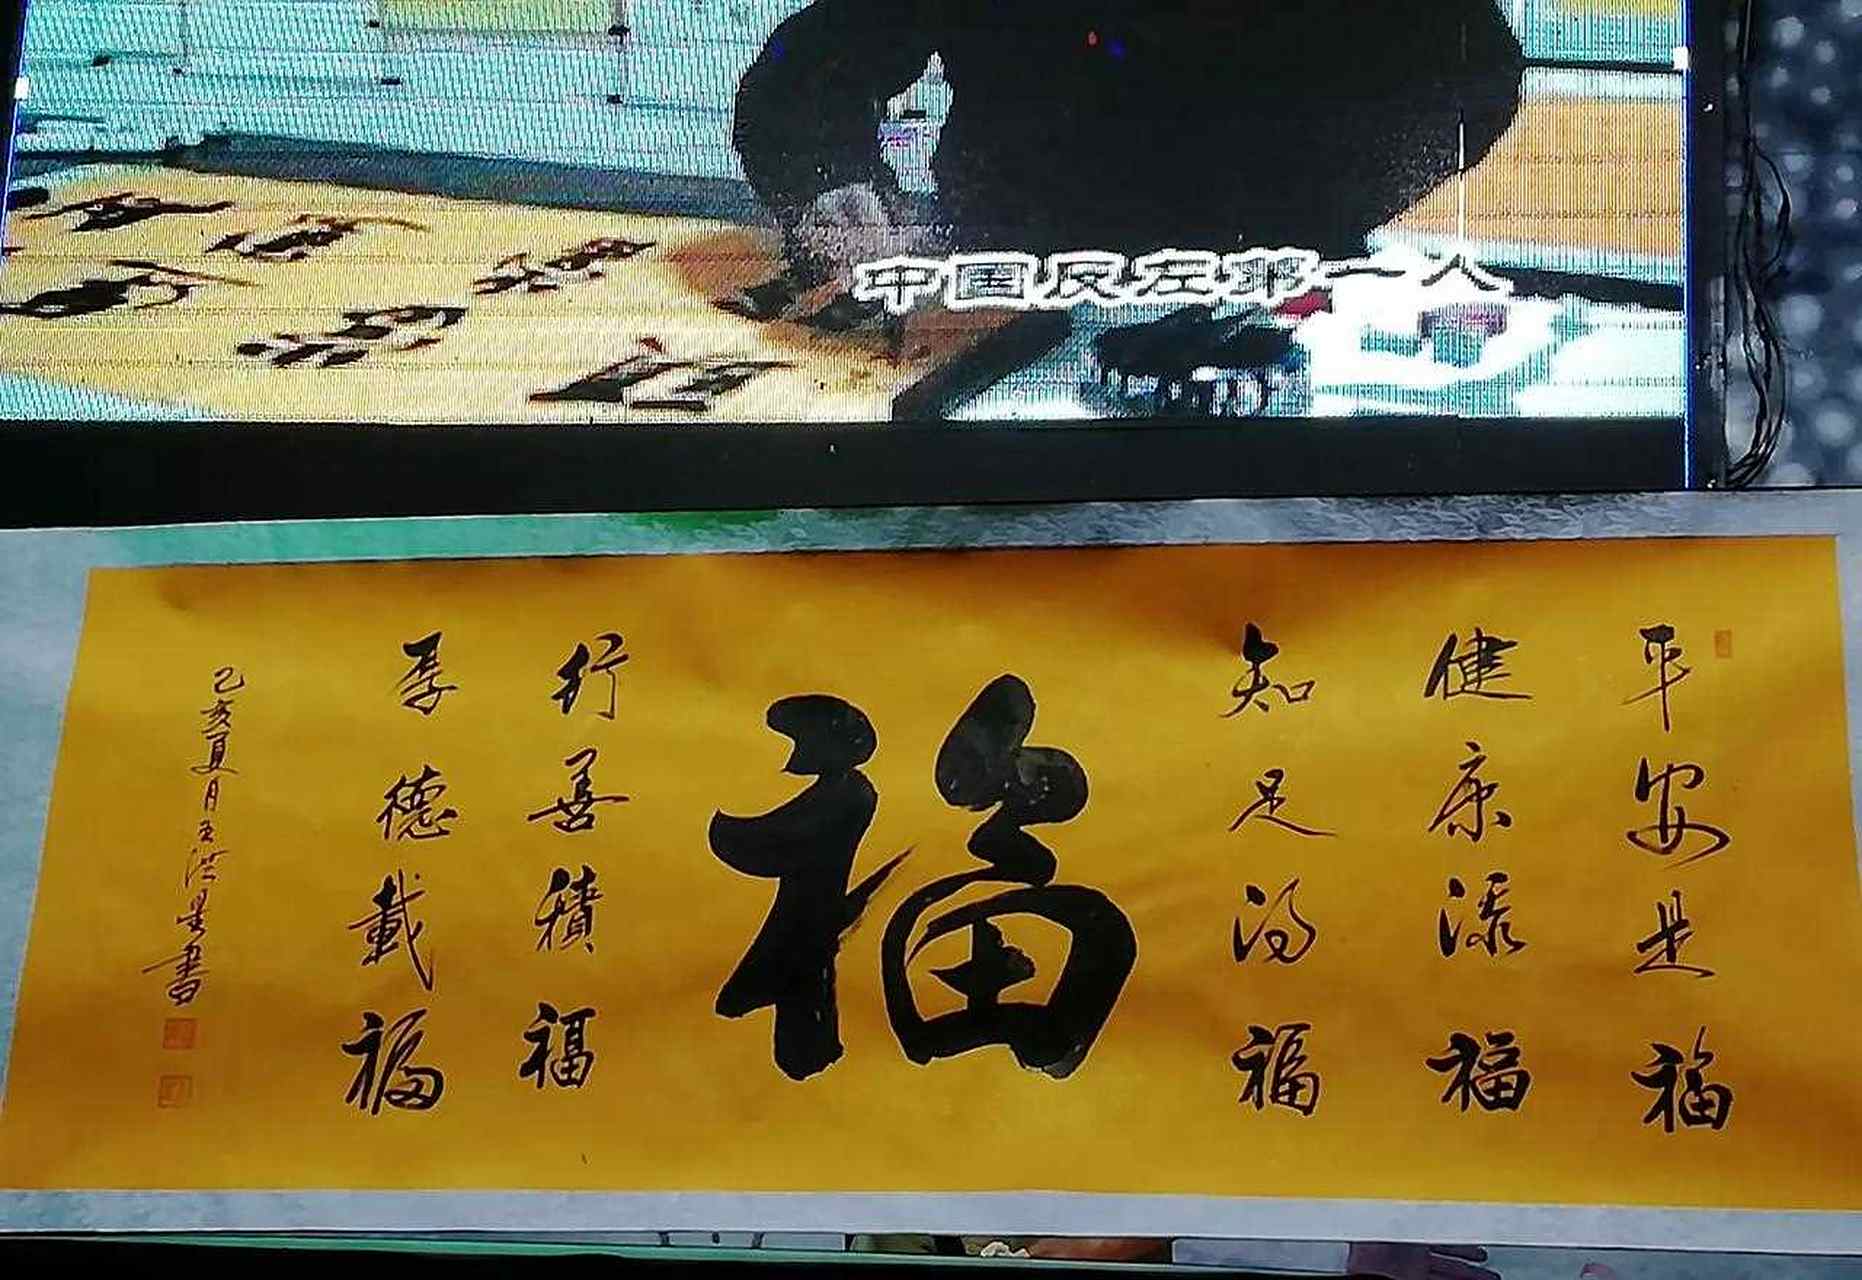 中国反左第一人
平安是福
健康添福
知足得福
福
行善積福
厚德載福
己亥夏月王洪星書